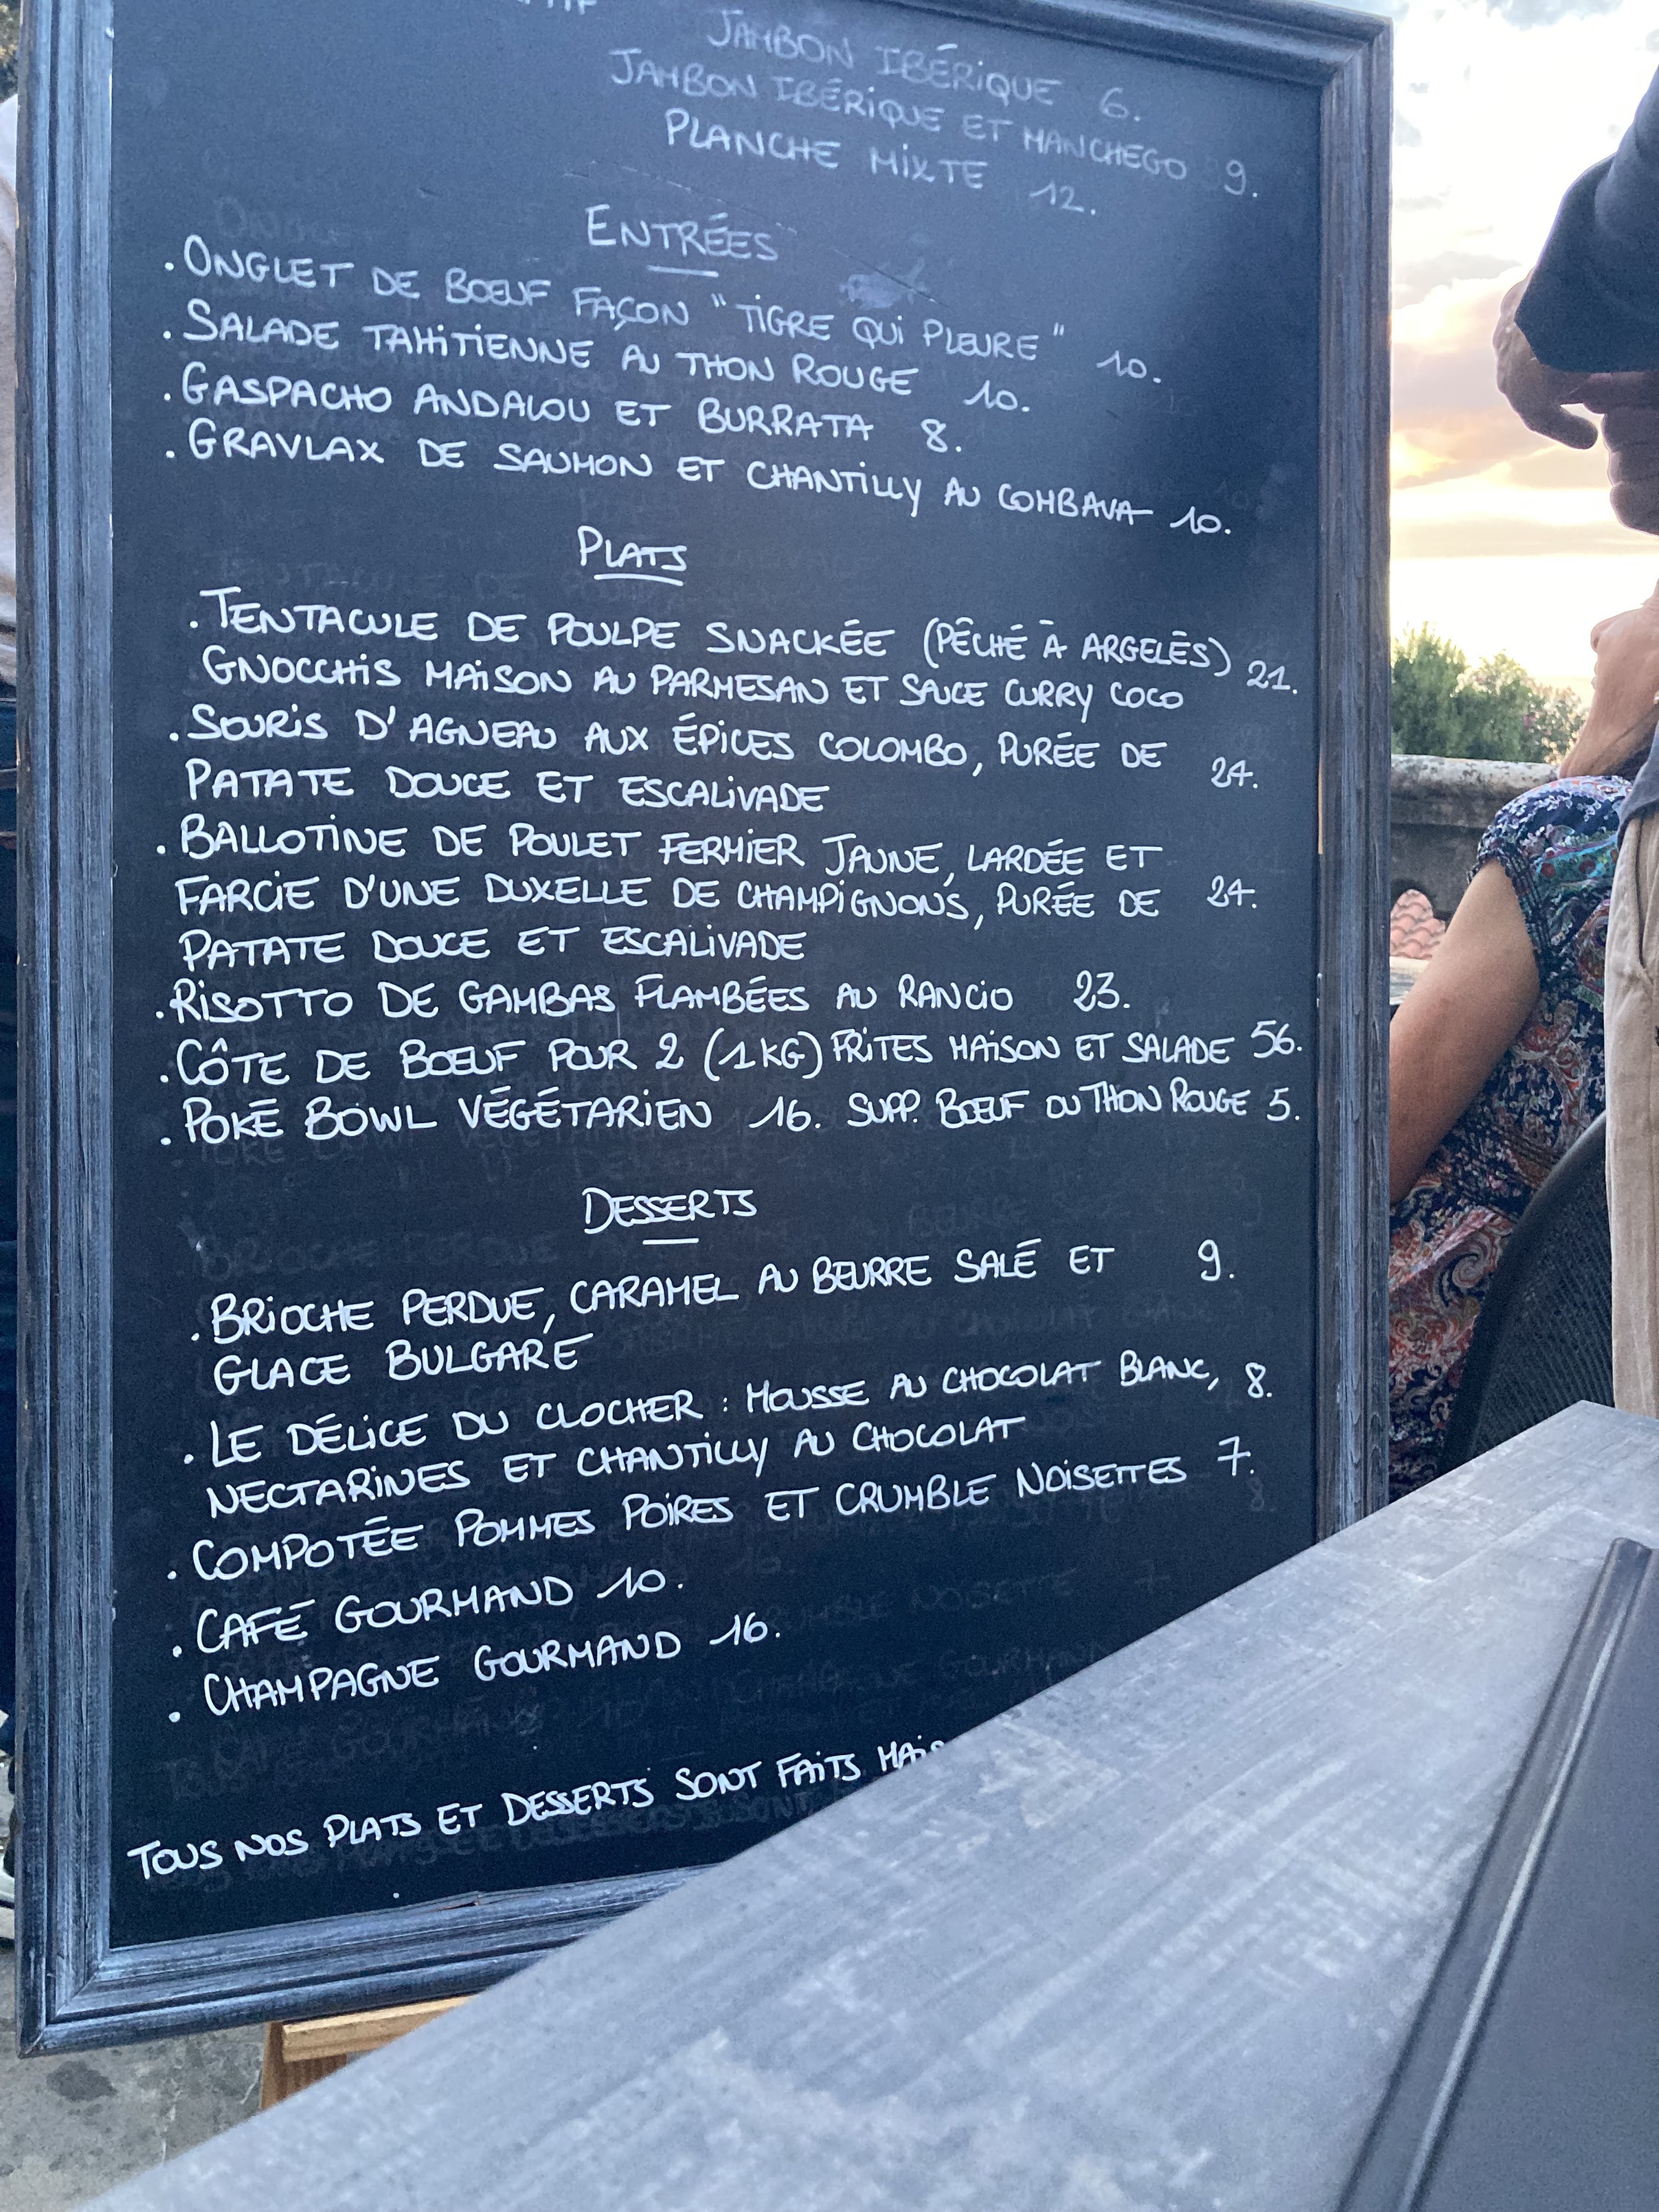 JAMBON IBÉRIQUE 6.
JAMBON IBÉRIQUE ET MANCHEGO 9.
PLANCHE MIXTE 12.
ENTRÉES
. ONGLET DE BŒUF FAÇON "TIGRE QUI PLEURE" 10.
. SALADE TAHITIENNE AU THON ROUGE 10.
. GASPACHO ANDALOU ET BURRATA 8.
. GRAVLAX DE SAUMON ET CHANTILLY AU COMBAVA 10.
PLATS
. TENTACULE DE POULPE SNACKÉE (PÊCHÉ À ARGELÈS) 21.
GNOCCHIS MAISON AU PARMESAN ET SAUCE CURRY COCO
. SOURIS D'AGNEAU AUX ÉPICES COLOMBO, PURÉE DE 24.
PATATE DOUCE ET ESCALIVADE
. BALLOTINE DE POULET FERMIER JAUNE, LARDÉE ET
FARCIE D'UNE DUXELLE DE CHAMPIGNONS, PURÉE DE 24.
PATATE DOUCE ET ESCALIVADE
. RISOTTO DE GAMBAS FLAMBÉES AU RANCIO 23.
. CÔTE DE BŒUF POUR 2 (1KG) FRITES MAISON ET SALADE 56.
. POKÉ BOWL VÉGÉTARIEN 16. SUPP. BŒUF OU THON ROUGE 5.
DESSERTS
. BRIOCHE PERDUE, CARAMEL AU BEURRE SALÉ ET 9.
GLACE BULGARE
. LE DÉLICE DU CLOCHER : MOUSSE AU CHOCOLAT BLANC, 8.
NECTARINES ET CHANTILLY AU CHOCOLAT
. COMPOTÉE POMMES POIRES ET CRUMBLE NOISETTES 7.
. CAFÉ GOURMAND 10.
. CHAMPAGNE GOURMAND 16.
TOUS NOS PLATS ET DESSERTS SONT FAITS MAIS